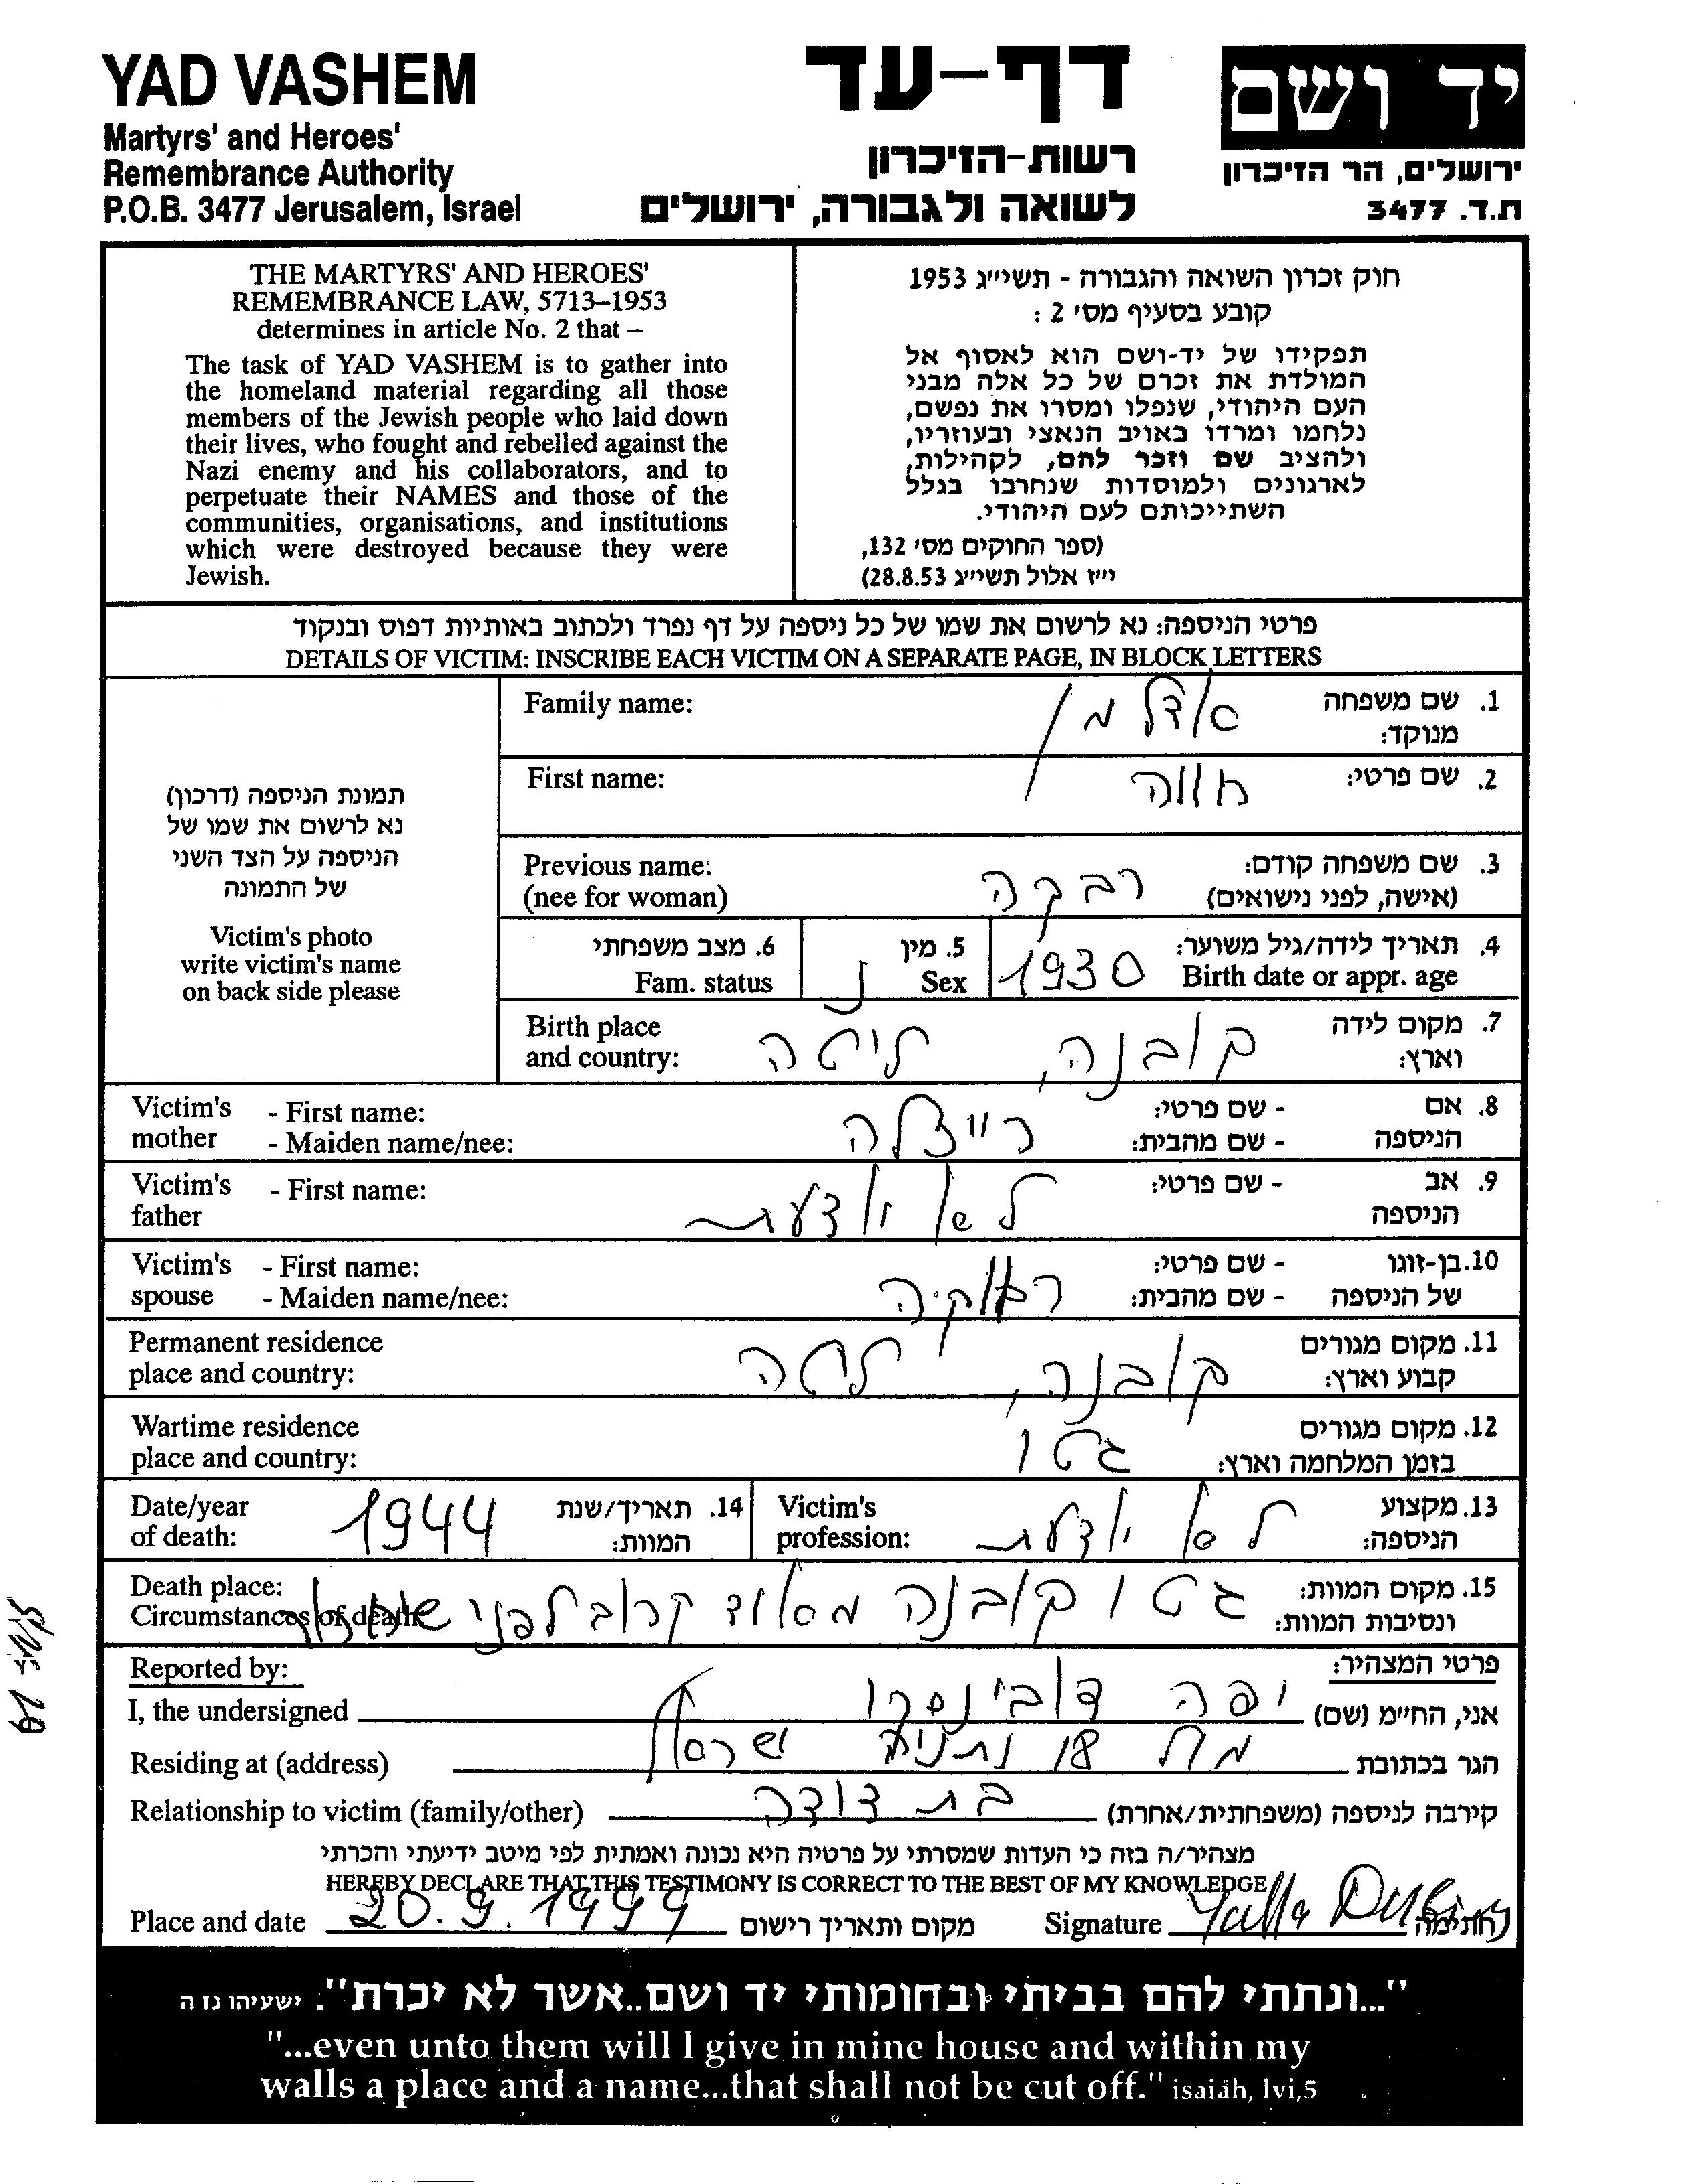 YAD VASHEM
Martyrs' and Heroes'
Remembrance Authority
P.O.B. 3477 Jerusalem, Israel
דף-עד
רשות-הזיכרון
לשואה ולגבורה, ירושלים
יד ושם
ירושלים, הר הזיכרון
ת.ד. 3477
THE MARTYRS' AND HEROES'
REMEMBRANCE LAW, 5713–1953
determines in article No. 2 that –
The task of YAD VASHEM is to gather into
the homeland material regarding all those
members of the Jewish people who laid down
their lives, who fought and rebelled against the
Nazi enemy and his collaborators, and to
perpetuate their NAMES and those of the
communities, organisations, and institutions
which were destroyed because they were
Jewish.
חוק זכרון השואה והגבורה - תשי״ג 1953
קובע בסעיף מס' 2 :
תפקידו של יד-ושם הוא לאסוף אל
המולדת את זכרם של כל אלה מבני
העם היהודי, שנפלו ומסרו את נפשם,
נלחמו ומרדו באויב הנאצי ובעוזריו,
ולהציב שם וזכר להם, לקהילות,
לארגונים ולמוסדות שנחרבו בגלל
השתייכותם לעם היהודי.
(ספר החוקים מס' 132,
י״ז אלול תשי״ג 28.8.53)
פרטי הניספה: נא לרשום את שמו של כל ניספה על דף נפרד ולכתוב באותיות דפוס ובנקוד
DETAILS OF VICTIM: INSCRIBE EACH VICTIM ON A SEPARATE PAGE, IN BLOCK LETTERS
תמונת הניספה (דרכון)
נא לרשום את שמו של
הניספה על הצד השני
של התמונה
Victim's photo
write victim's name
on back side please
1. שם משפחה אדלמן Family name:
מנוקד:
2. שם פרטי: חווה First name:
3. שם משפחה קודם: רבקה Previous name:
(אישה, לפני נישואים) (nee for woman)
4. תאריך לידה/גיל משוער: 1930 5. מין נ 6. מצב משפחתי
Birth date or appr. age Sex Fam. status
7. מקום לידה קובנה, ליטה Birth place
וארץ: and country:
8. אם - שם פרטי: רייזלה Victim's - First name:
הניספה - שם מהבית: mother - Maiden name/nee:
9. אב - שם פרטי: לא יודעת Victim's - First name:
הניספה father
10. בן-זוגו - שם פרטי: Victim's - First name:
של הניספה - שם מהבית: spouse - Maiden name/nee:
11. מקום מגורים קובנה, ליטה Permanent residence
קבוע וארץ: place and country:
12. מקום מגורים גטו Wartime residence
בזמן המלחמה וארץ: place and country:
13. מקצוע לא יודעת Victim's 14. תאריך/שנת 1944 Date/year
הניספה: profession: המוות: of death:
15. מקום המוות: גטו קובנה מאוד קרוב לפני Death place:
ונסיבות המוות: Circumstances of death
פרטי המצהיר: Reported by:
אני, הח״מ (שם) יפה דובינסקי I, the undersigned
הגר בכתובת 18 נתניה ישראל Residing at (address)
קירבה לניספה (משפחתית/אחרת) בת דודה Relationship to victim (family/other)
מצהיר/ה בזה כי העדות שמסרתי על פרטיה היא נכונה ואמתית לפי מיטב ידיעתי והכרתי
HEREBY DECLARE THAT THIS TESTIMONY IS CORRECT TO THE BEST OF MY KNOWLEDGE
Place and date 20.9.1999 מקום ותאריך רישום Signature Yaffa Dubins חתימה
"...ונתתי להם בביתי ובחומותי יד ושם..אשר לא יכרת". ישעיהו נו ה
"...even unto them will I give in mine house and within my
walls a place and a name...that shall not be cut off." isaiah, lvi,5